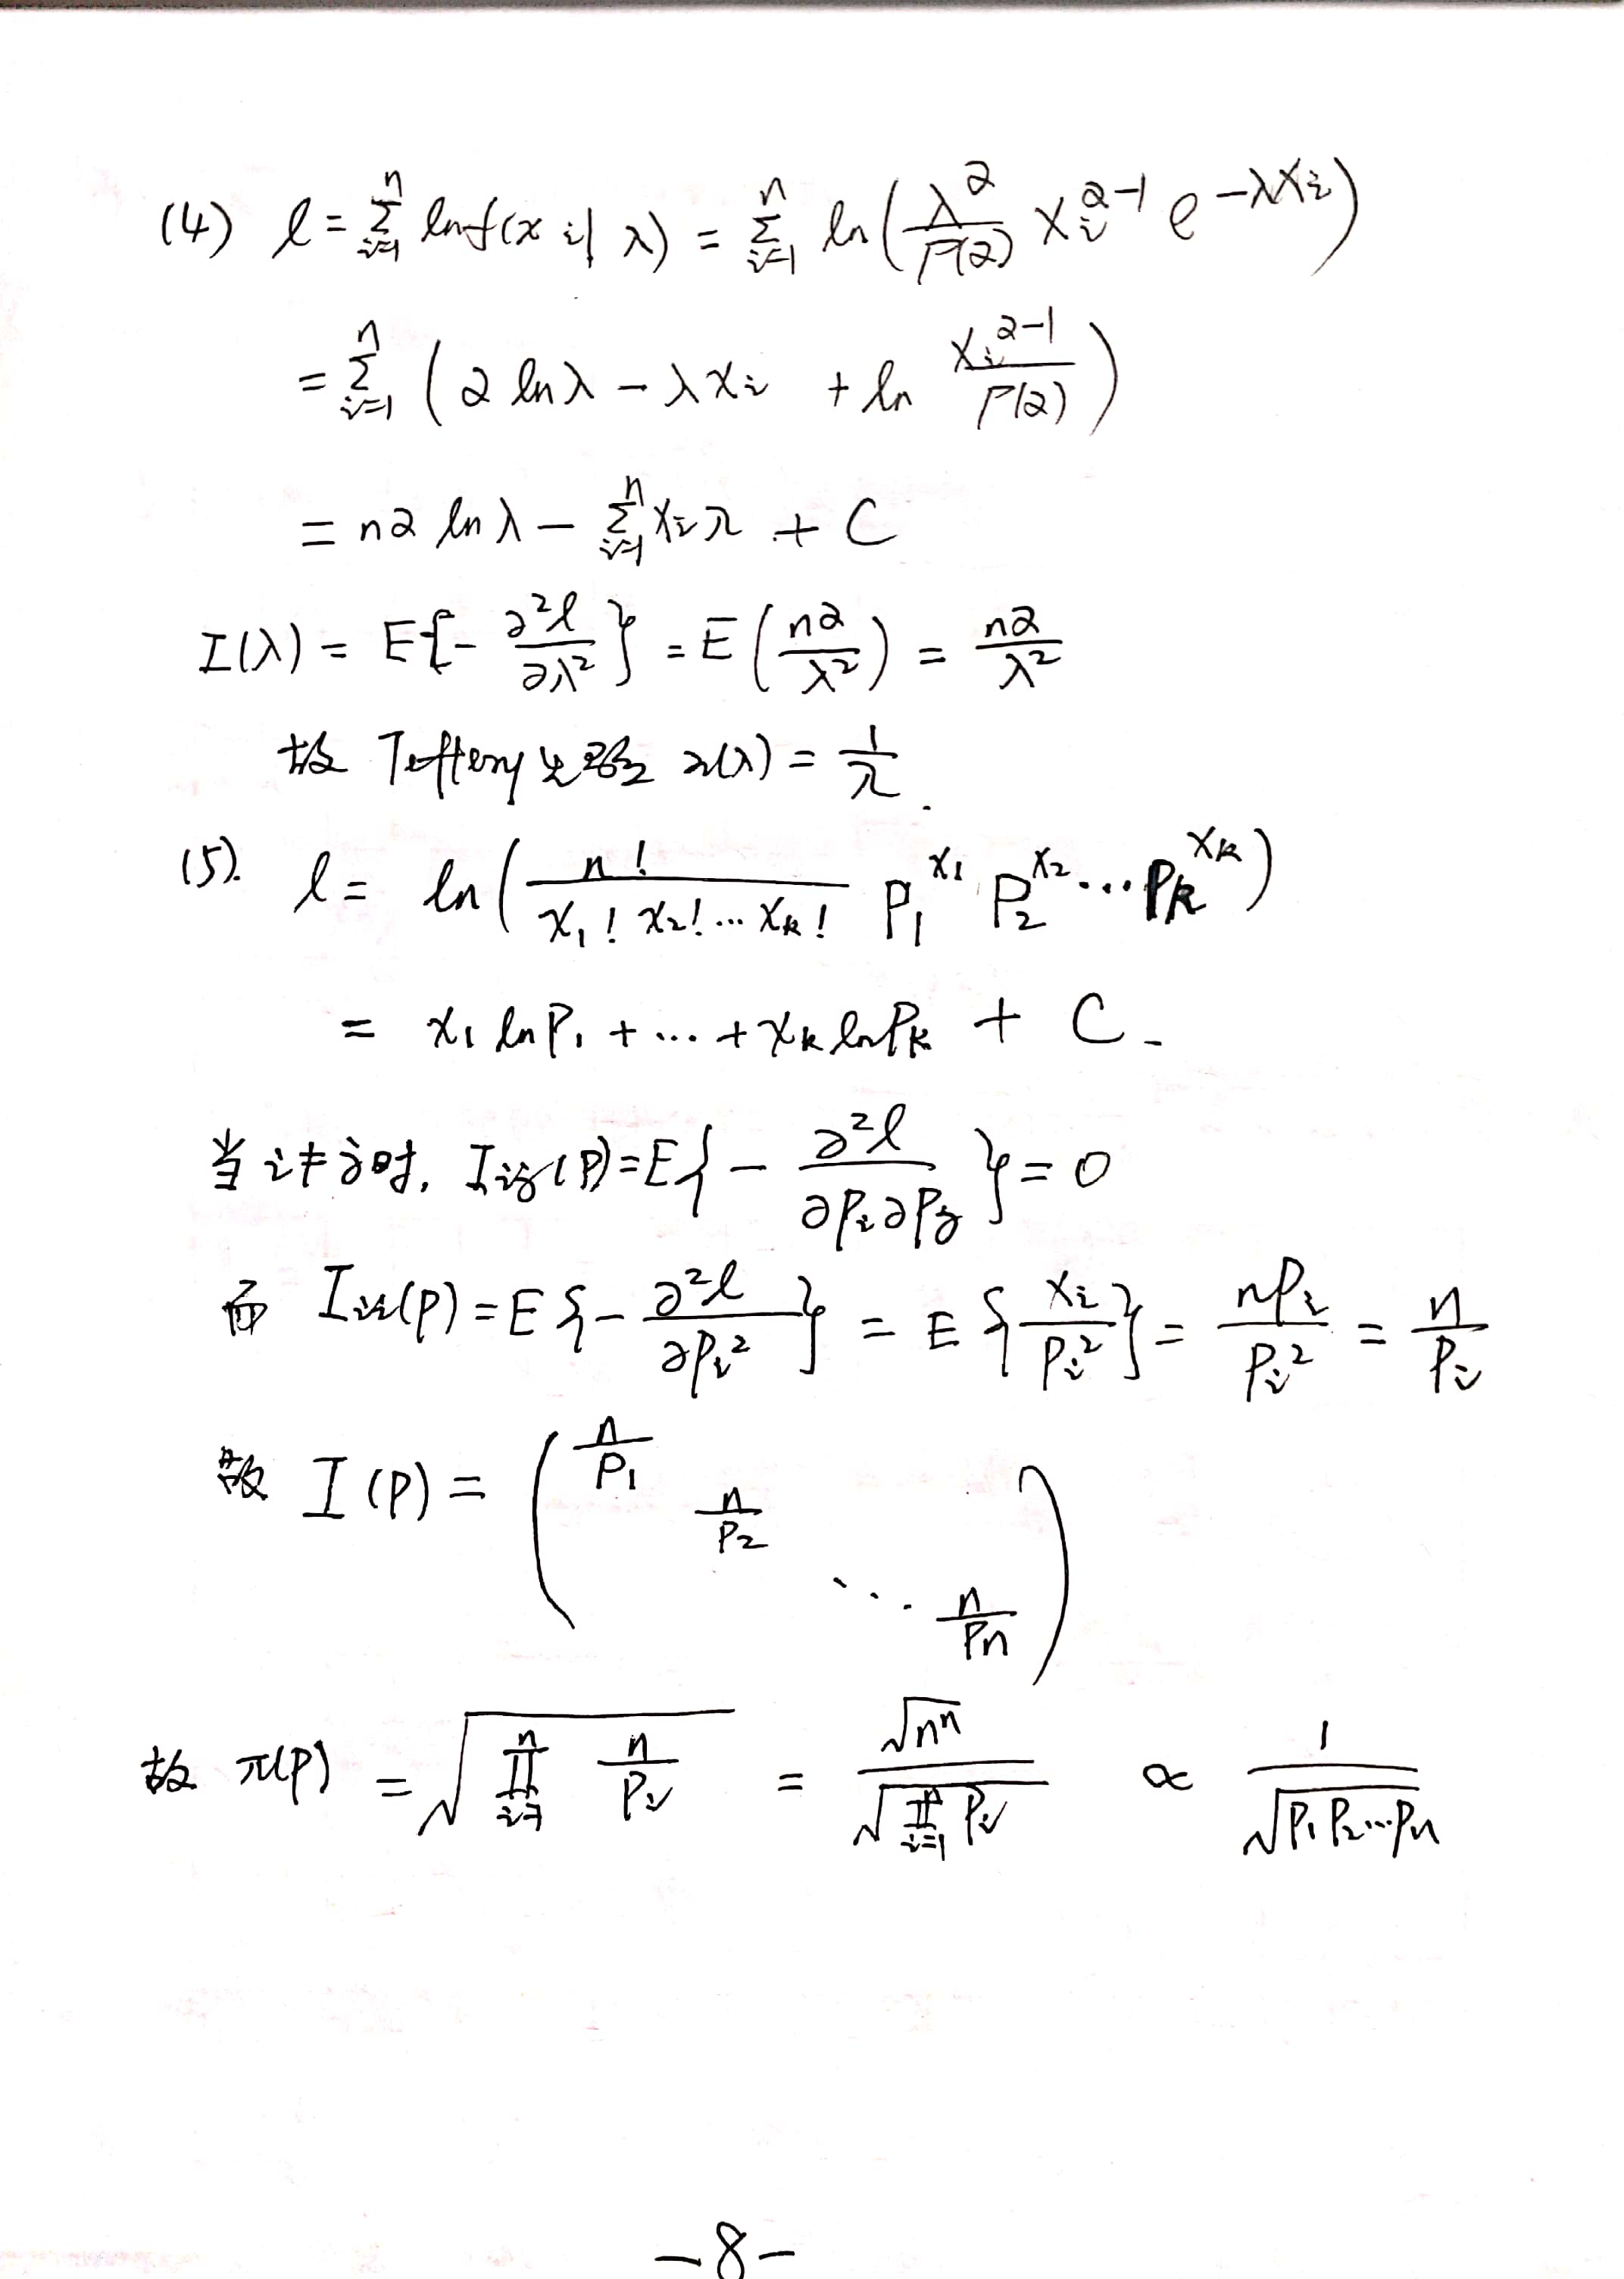 (4) l = ∑_{i=1}^{n} ln f(x_i | λ) = ∑_{i=1}^{n} ln( λ^α / Γ(α) x_i^{α-1} e^{-λx_i} )
= ∑_{i=1}^{n} ( α ln λ - λ x_i + ln x_i^{α-1} / Γ(α) )
= nα ln λ - ∑_{i=1}^{n} x_i λ + C
I(λ) = E{ - ∂²l / ∂λ² } = E( nα / λ² ) = nα / λ²
故 Jeffery 先验 π(λ) = 1 / λ .
(5). l = ln( n! / x_1! x_2! … x_k! P_1^{x_1} P_2^{x_2} … P_k^{x_k} )
= x_1 ln P_1 + … + x_k ln P_k + C .
当 i ≠ j 时, I_{ij}(P) = E{ - ∂²l / ∂P_i ∂P_j } = 0
而 I_{ii}(P) = E{ - ∂²l / ∂P_i² } = E{ x_i / P_i² } = nP_i / P_i² = n / P_i
故 I(P) = ( n/P_1 n/P_2 ⋱ n/P_n )
故 π(P) = √( ∏_{i=1}^{n} n / P_i ) = √(n^n) / √( ∏_{i=1}^{n} P_i ) ∝ 1 / √( P_1 P_2 … P_n )
-8-